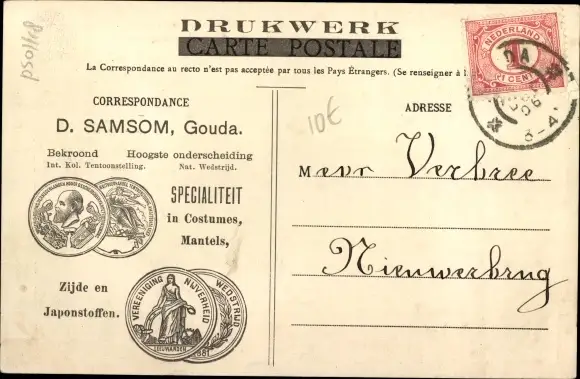 DRUKWERK
CARTE POSTALE
La Correspondance au recto n'est pas acceptée par tous les Pays Étrangers. (Se renseigner à l
NEDERLAND
1
CENT
DA
3-4
psoi1o48
10€
CORRESPONDANCE
ADRESSE
D. SAMSOM, Gouda.
Bekroond Hoogste onderscheiding
Int. Kol. Tentoonstelling. Nat. Wedstrijd.
SPECIALITEIT
in Costumes,
Mantels,
Mevr Verbree
Zijde en
Japonstoffen.
VEREENIGING NIJVERHEID
WEDSTRIJD
LEEUWARDEN
1881
Nieuwerbrug